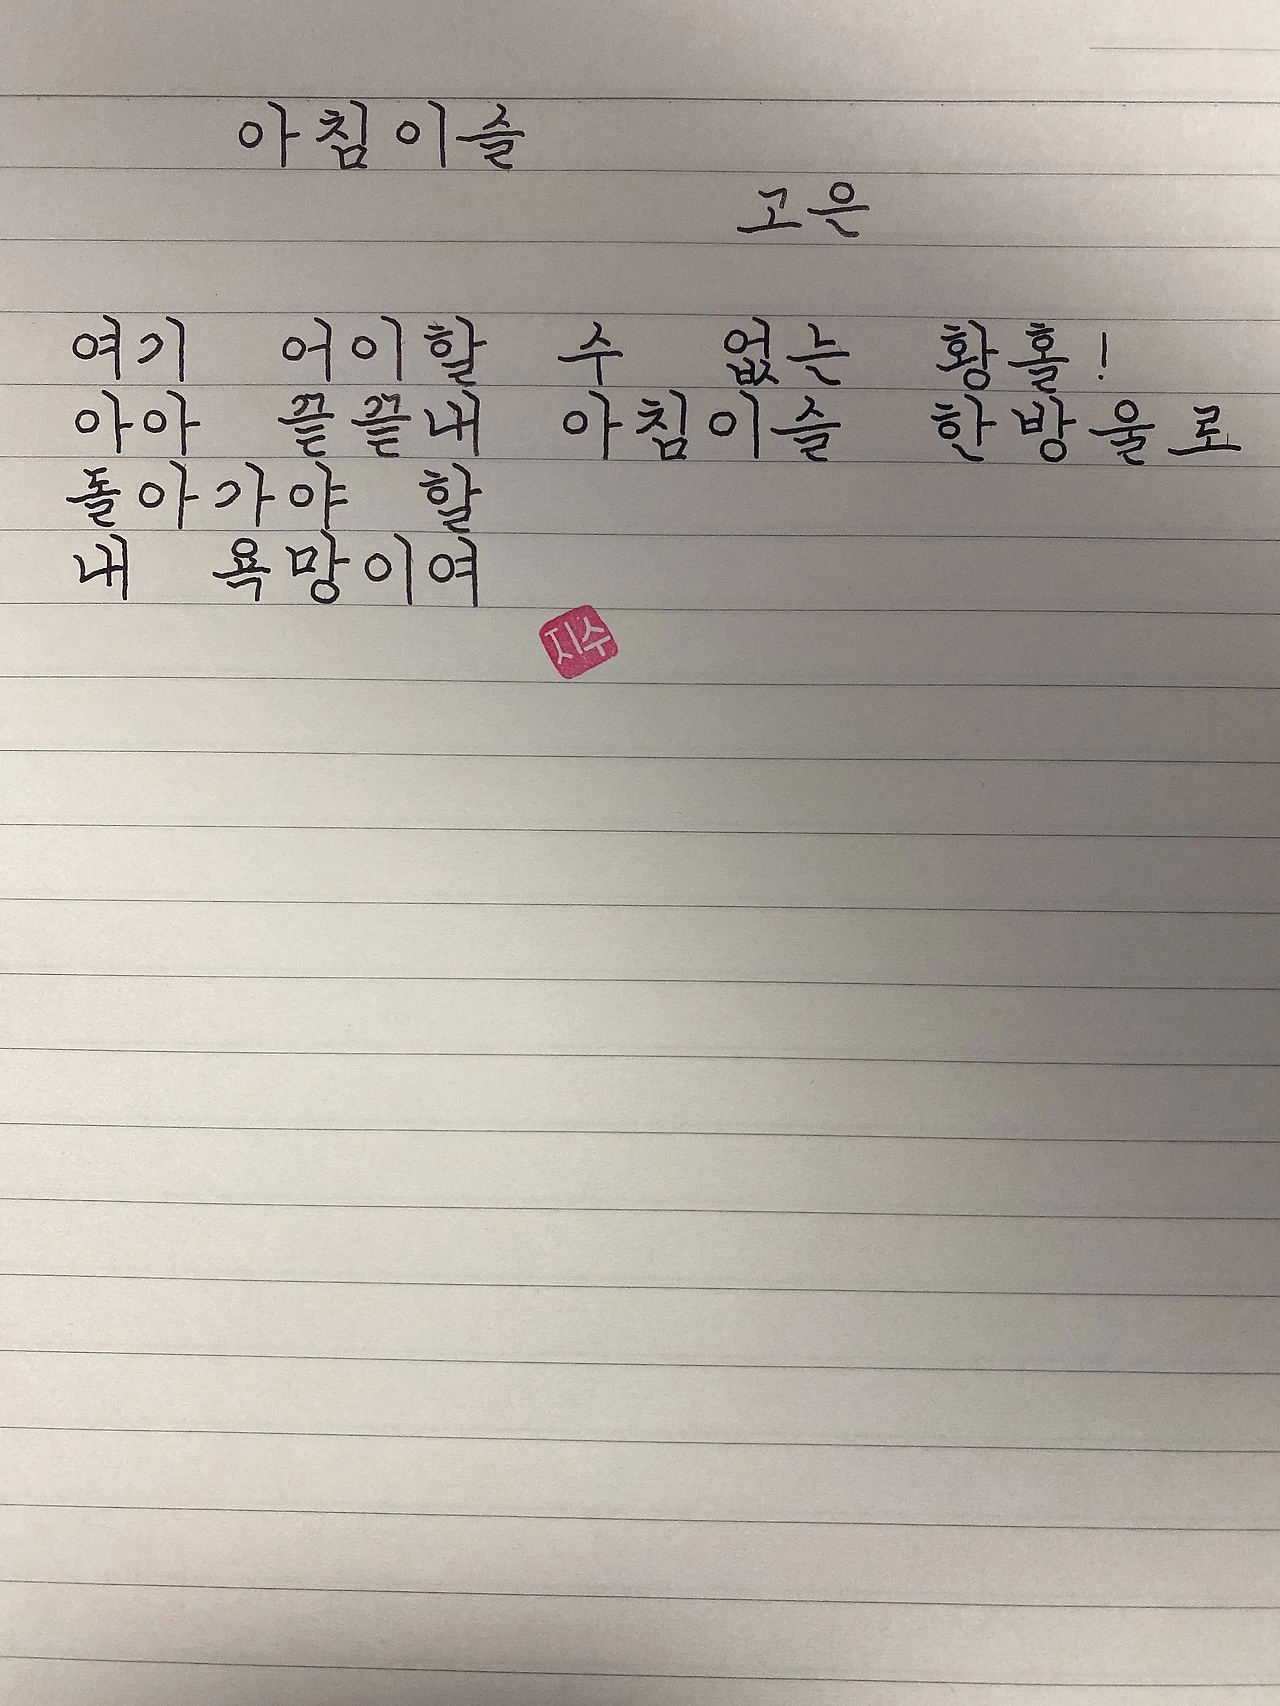 아침이슬
고은
여기 어이할 수 없는 황홀!
아아 끝끝내 아침이슬 한방울로
돌아가야 할
내 욕망이여
지수